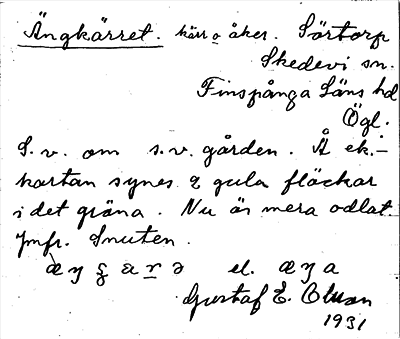 Ängkärret. kärr o åker. Sörtorp
Skedevi sn.
Finspånga Läns hd
Ögl.
S. v. om s. v. gården. Å ek.-
kartan synes 2 gula fläckar
i det gröna. Nu är mera odlat.
Jmfr. Snuten.
el.
Gustaf E.
1931